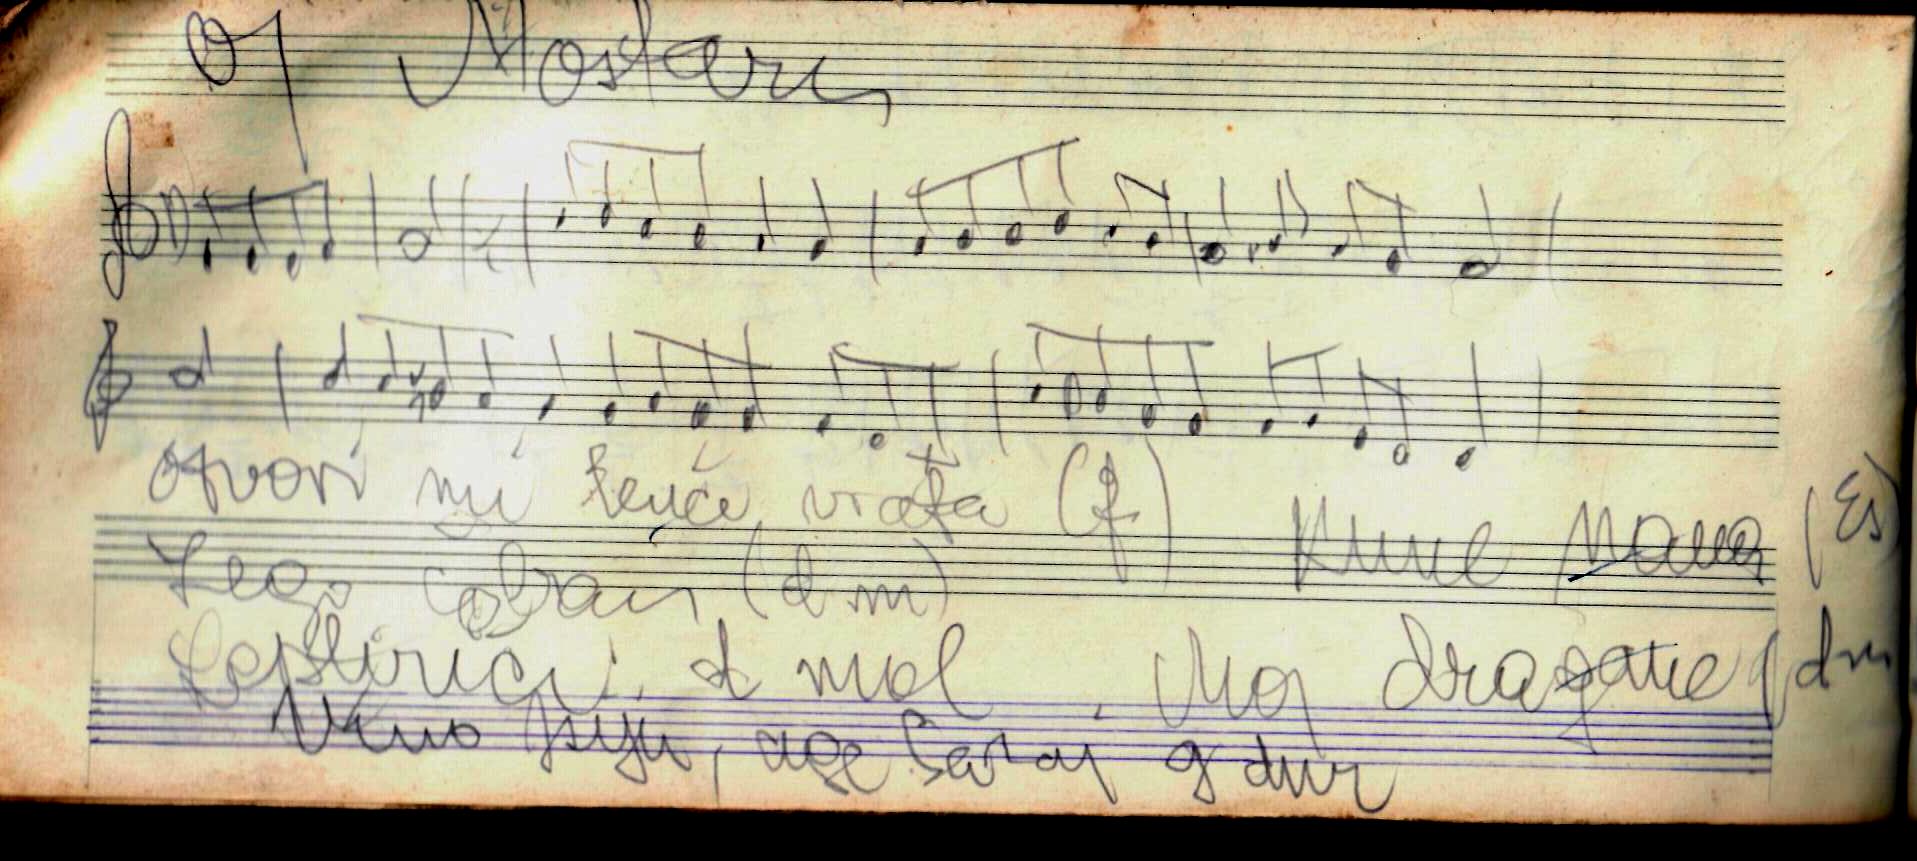 Oj Mostaru
Otvori mi lenče vrata (f)
Kune Mama (Es)
Lego čoban (dm)
Leptirići d mol Moj dragane (dm
Vino piju, age Saraj g dur